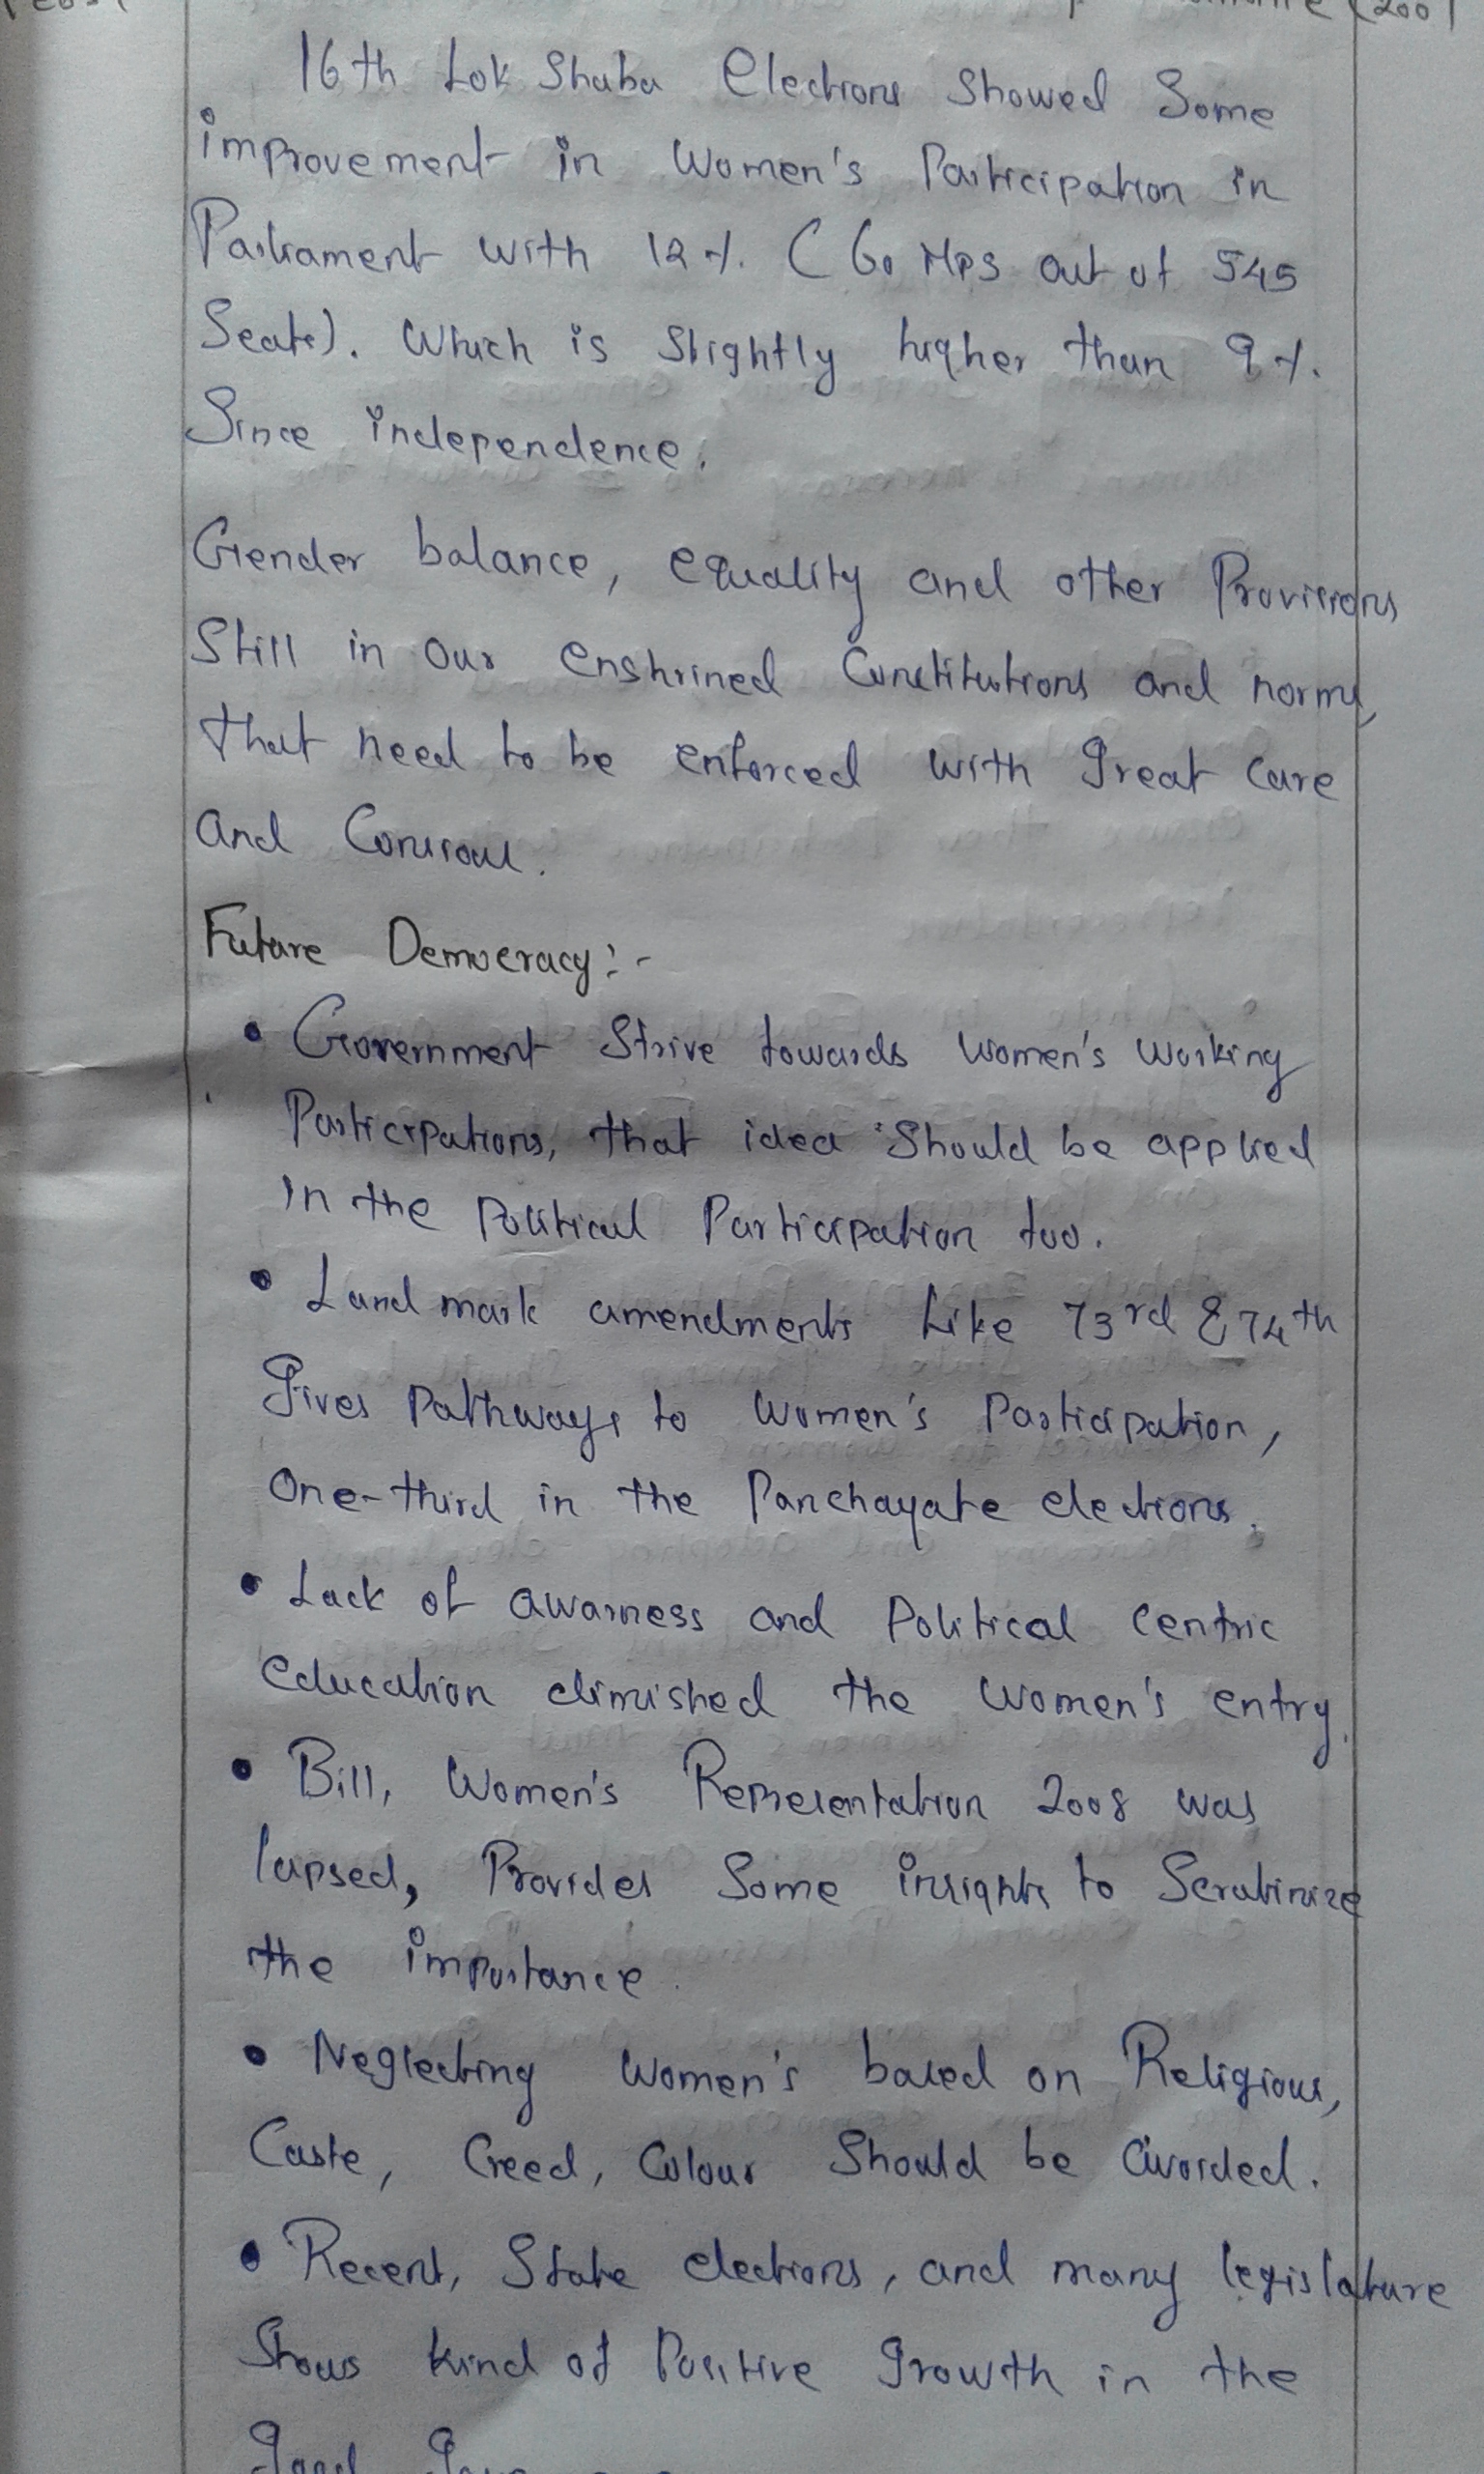 (2001
16th Lok Shaba Elections Showed Some
improvement in Women's Participation in
Parliament with 12%. (60 MPs out of 545
Seats). Which is Slightly higher than 9%.
Since independence.
Gender balance, equality and other Provisions
Still in our enshrined Constitutions and norms,
that need to be enforced with great care
and
Future Democracy:-
• Government Strive towards women's working
Participations, that idea Should be applied
in the political Participation too.
• Land mark amendments Like 73rd & 74th
gives Pathways to women's Participation,
One-third in the Panchayats elections.
• Lack of awarness and Political Centric
education dimished the women's entry.
• Bill, Women's Representation 2008 was
lapsed, Provides Some insights to Scrutinize
the importance.
• Neglecting women's based on Religious,
Caste, Creed, Colour Should be avoided.
• Recent, State elections, and many legislature
Shows kind of Positive growth in the